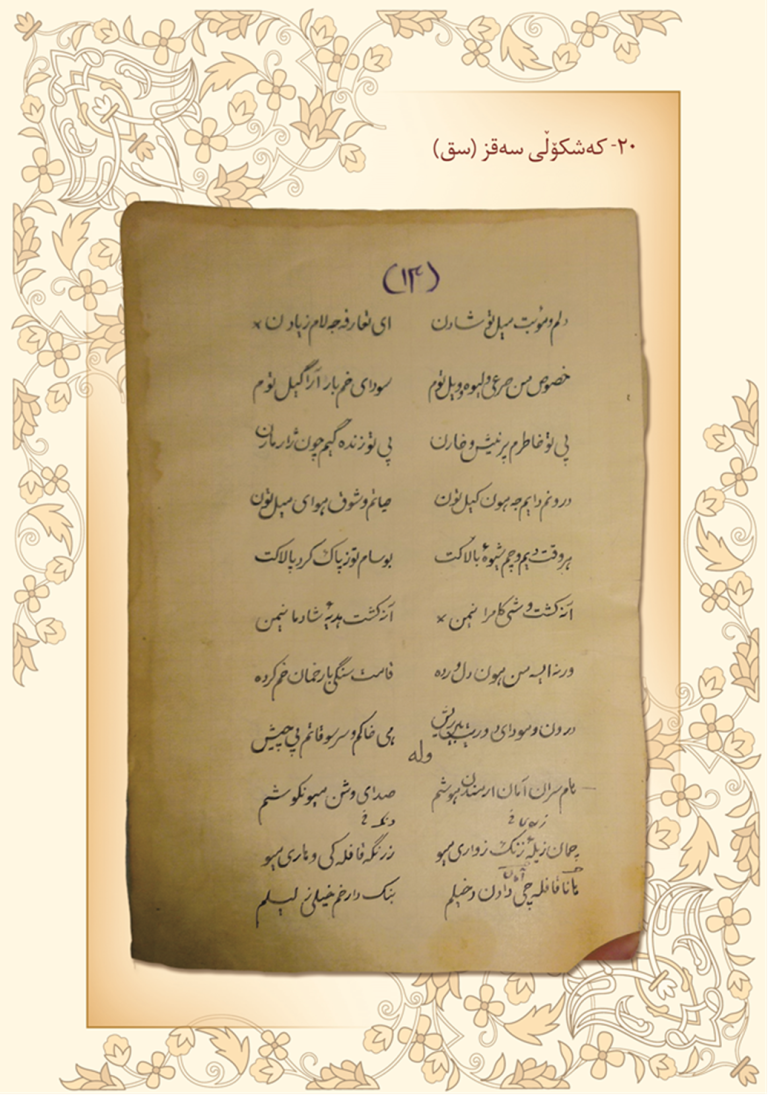 ٢٠- کەشکۆڵی سەقز (سق)
(١٤)
دلم و مؤبت میل تو شادن ای تعارفه جه لام زیادن ×
خصوص من جرعی دلیوه و ویل توم سودای خم بار آرا گیل توم
بی تو خاطرم پر نیش و خارن بی تو زنده گیم چون ژار مارن
درونم دایم جه هون کیل تون حیاتم و شوق هوای میل تون
هر وقت دیم و چم شیوهٔ بالاکت بوسام توز پاک کرد پالاکت
آنه کشت و شی کامرا نیمن × آنه کشت هدیهٔ شادمانیمن
ورنه ایسه من هون دل ورده قامت سنگی بار خمان خم کرده
درون و سودای دوریت می خاکم و سر سوقاتم پی چیش
وله
یام سران آمان ار مندن هوشم صدای وشن میو نکوشم
چمان زیلهٔ زنگ زواری میو زرنگه قافله کی و ماری میو
یانا قافله چی دادن دخیلم بنک دار خم خیلی ژ لیلم